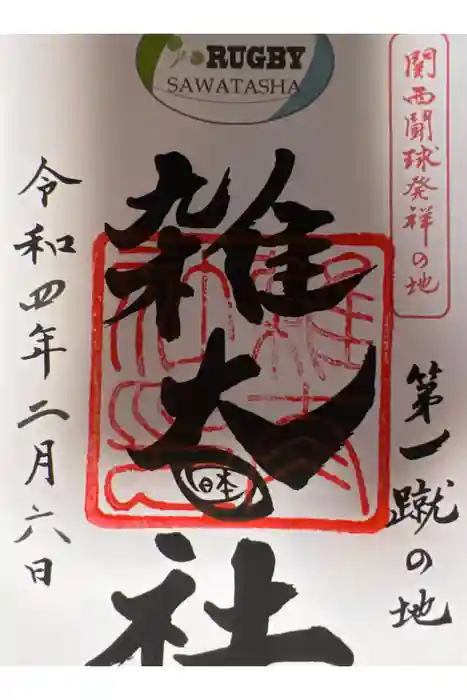 RUGBY
SAWATASHA
関西闘球発祥の地
第一蹴の地
雑太社
日本
令和四年二月六日